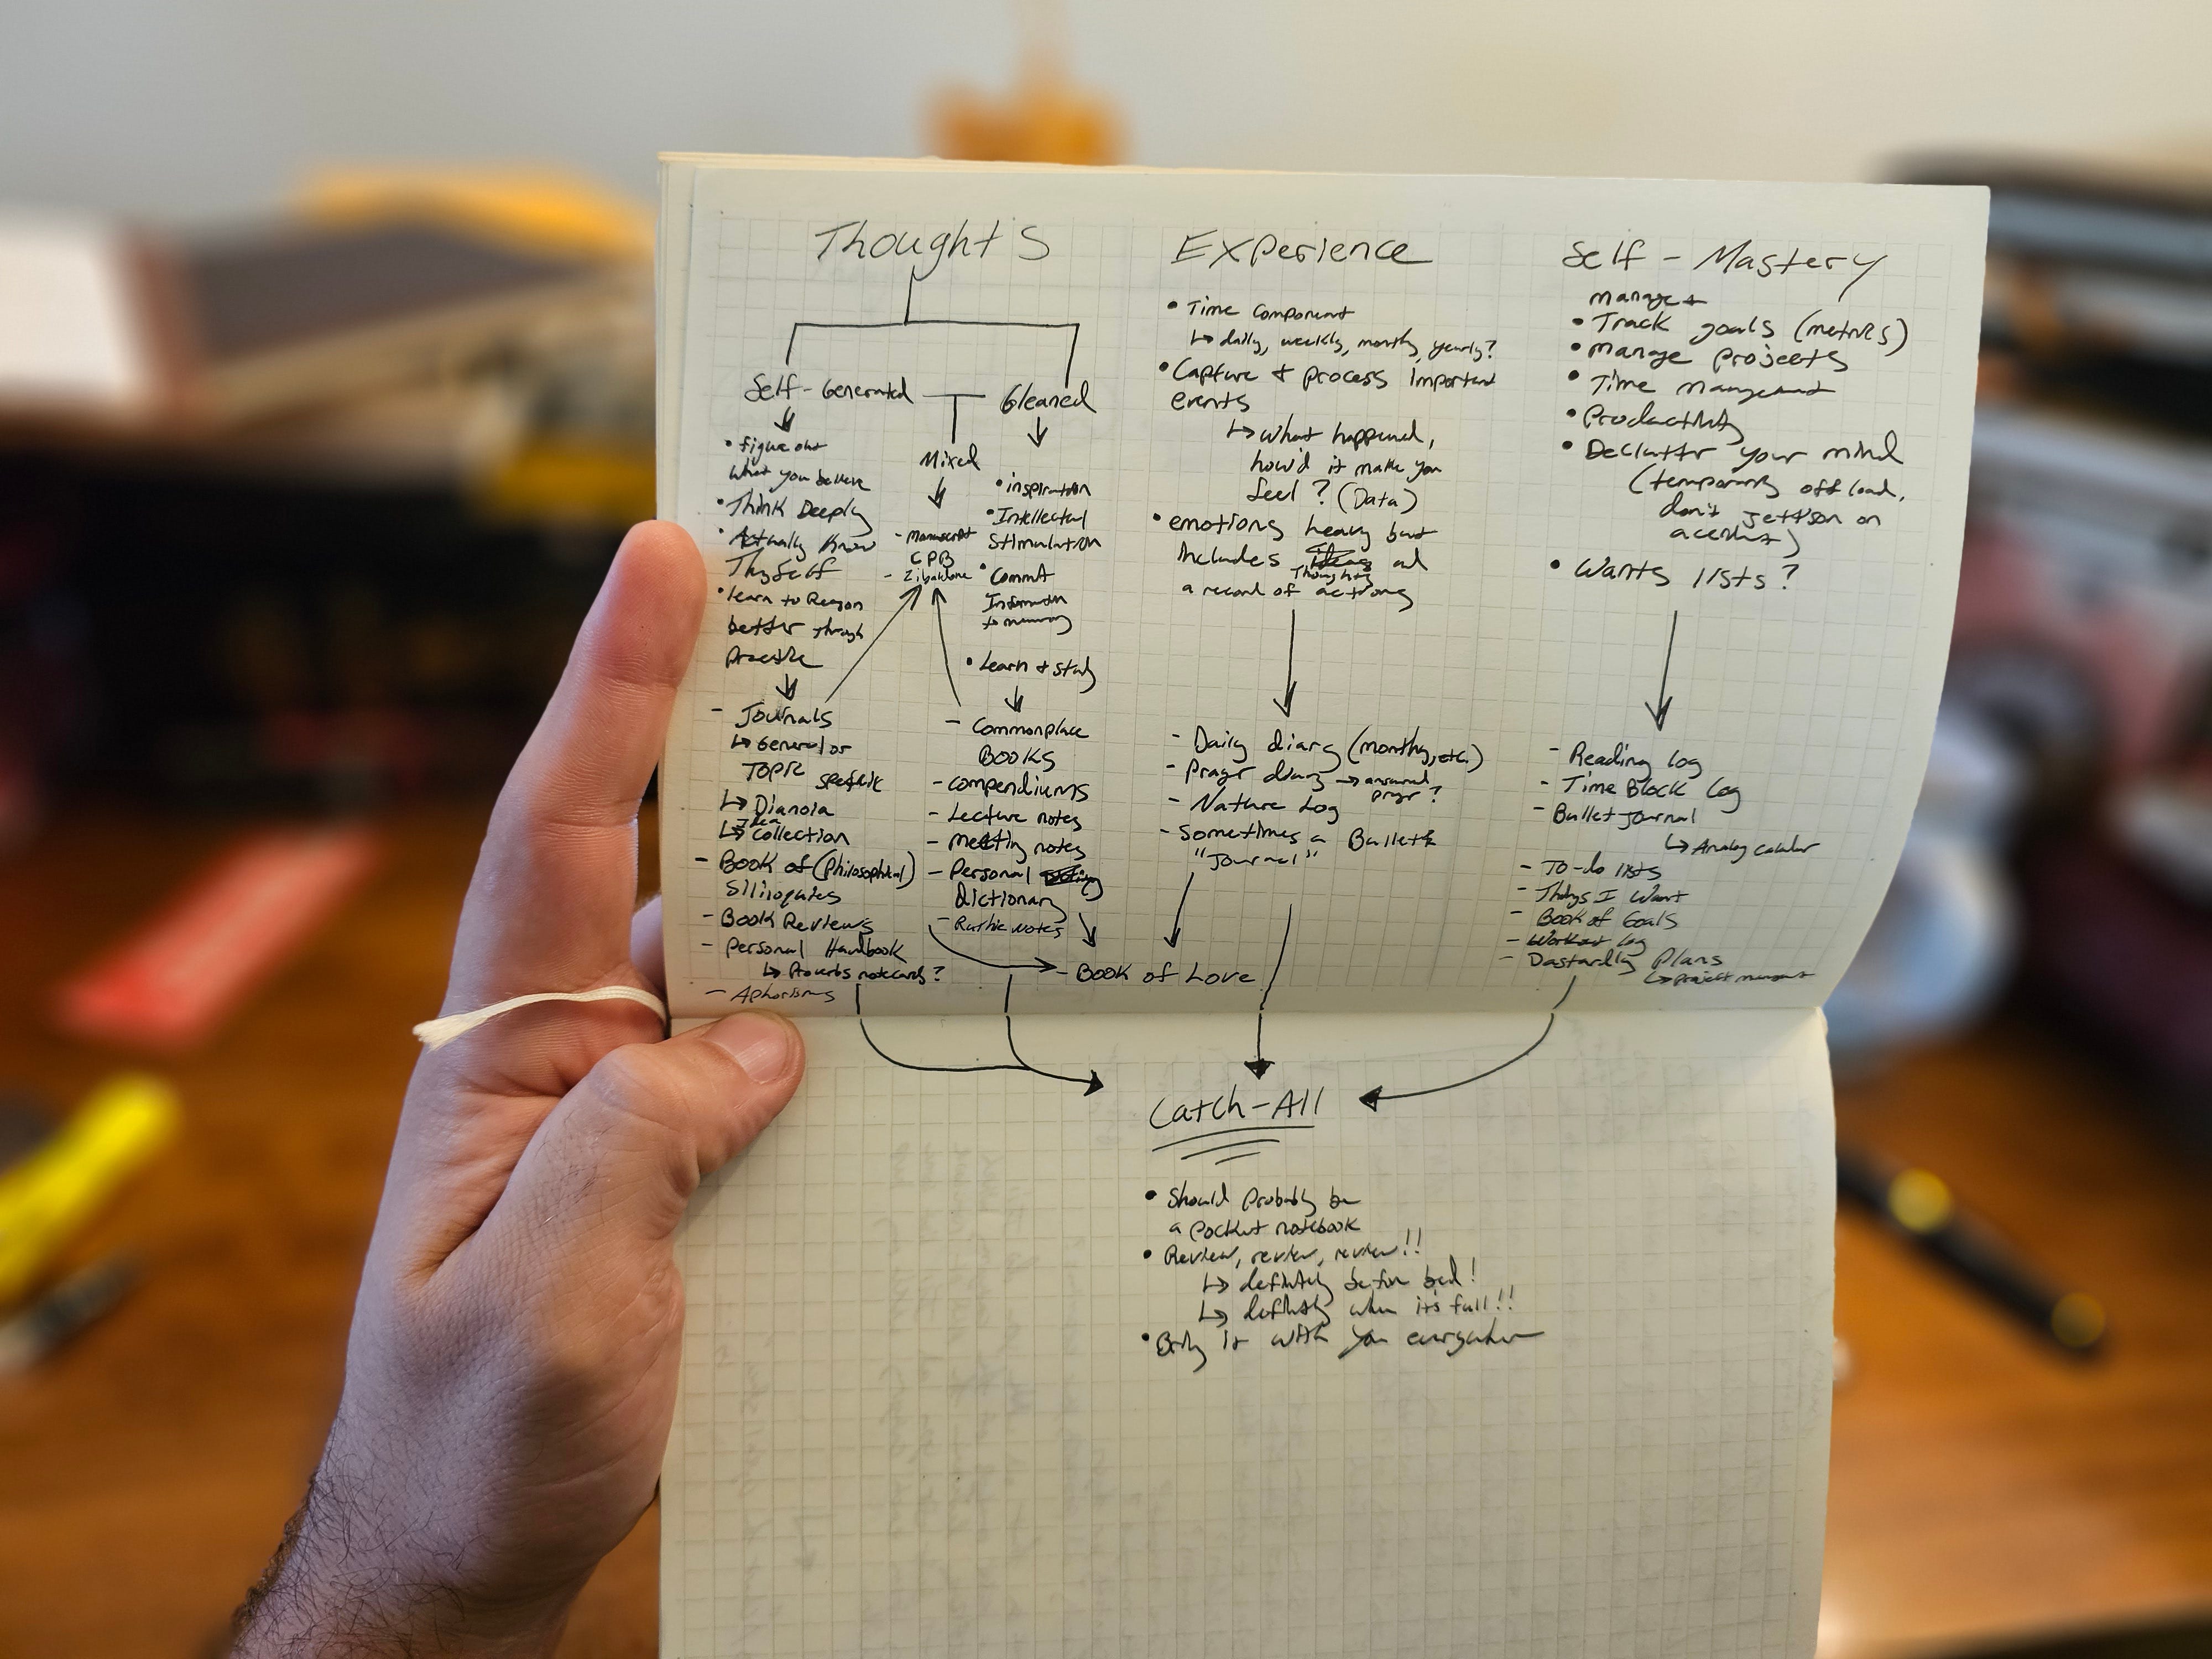 Thoughts
Self-Generated
Gleaned
Mixed
• figure out
what you believe
• Think Deeply
• Actually Know
Thy Self
• learn to Reason
better through
Practice
- Journals
↳ General or
Topic specific
↳ Dianoia
↳ Idea Collection
- Book of (Philosophical)
- Book Reviews
- Personal Handbook
↳ Proverbs notecards?
- Aphorisms
- Manuscript
CPB
- Zibaldone
• inspiration
• Intellectual
Stimulation
• Commit
Information
to memory
• Learn + study
- Commonplace
Books
- Compendiums
- Lecture notes
- Meeting notes
- Personal
Dictionary
- Book of Love
Experience
• Time Component
↳ daily, weekly, monthly, yearly?
• Capture + process Important
events
↳ what happened,
how'd it make you
feel? (Data)
• emotions heavy but
Includes Thoughts and
a record of actions
- Daily diary (monthly, etc.)
- Prayer diary → answered
prayer?
- Nature Log
- Sometimes a Bullet
"Journal"
Self-Mastery
manage +
• Track goals (metrics)
• Manage projects
• Time management
• Productivity
• Declutter your mind
(temporarily off load,
don't jettison on
accident)
• Wants lists?
- Reading log
- Time Block Log
- Bullet Journal
↳ Analog calendar
- To-do lists
- Things I Want
- Book of Goals
- Workout log
- Dastardly Plans
↳ project
Catch-All
• Should probably be
a pocket notebook
• Review, review, review!!
↳ definitely before bed!
↳ definitely when it's full!!
• Bring it with you everywhere